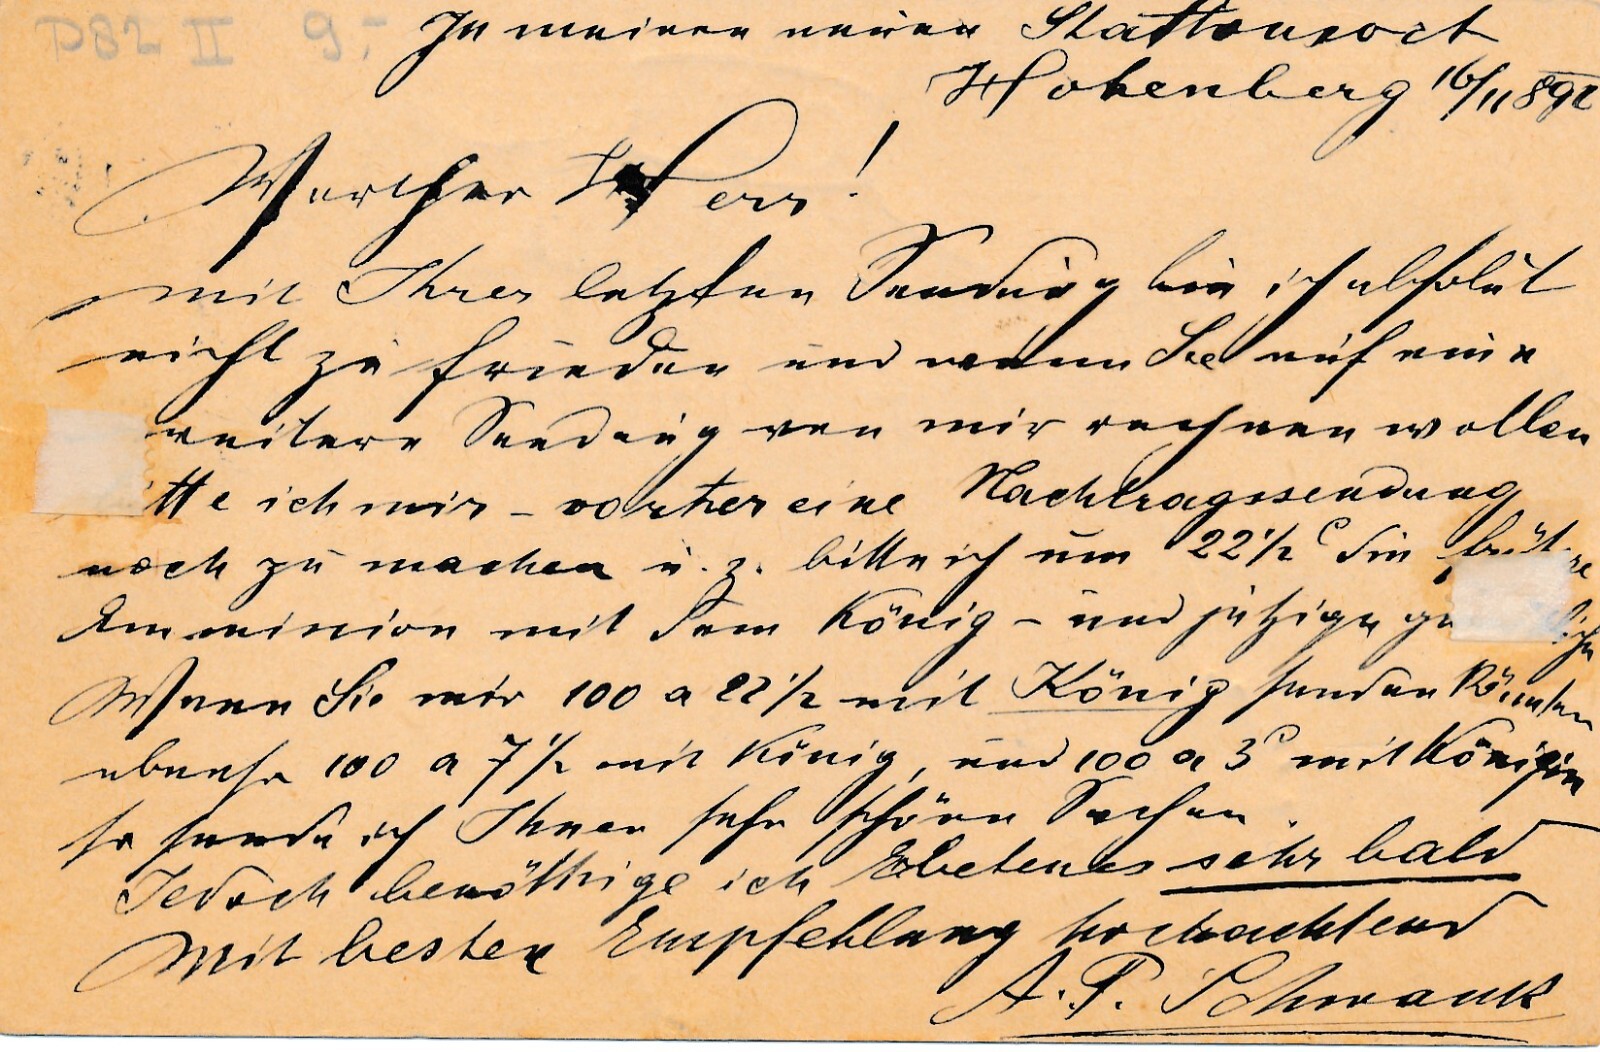 D82 II 9.-
In meinem neuen Stationsort
Hohenberg 16/11 892
Werther Herr!
mit Ihrer letzten Sendung bin ich absolut
nicht zu frieden und wenn Sie auf eine
weitere Sendung von mir rechnen wollen
itte ich mir – vorher eine Nachtragssendung
noch zu machen u. z. bitte ich um 22 1/2 c die frühere
Emmission mit dem König – und jetzige
Wenn Sie mir 100 a 22 1/2 mit König senden könnten
ebenso 100 a 7 1/2 mit König, und 100 a 3 c mit Königin
so sende ich Ihnen sehr schöne Sachen.
Jedoch benöthige ich Erbetenes sehr bald
Mit besten Empfehlung hochachtend
A. P. Schwank